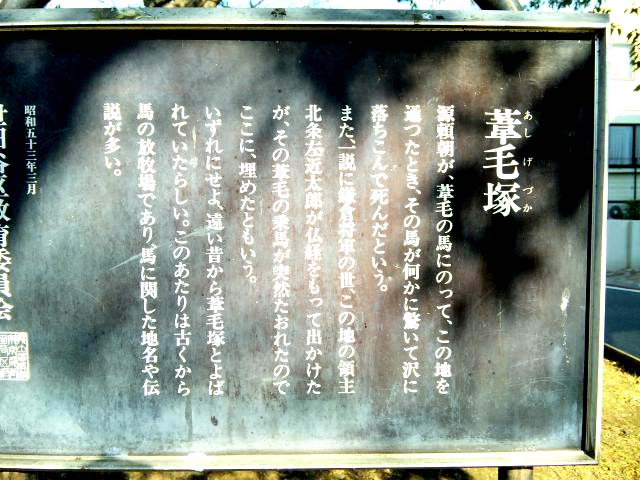 葦毛塚
あしげづか
源頼朝が、葦毛の馬にのって、この地を
通つたとき、その馬が何かに驚いて沢に
落ちこんで死んだという。
また、一説に鎌倉将軍の世、この地の領主
北条左近太郎が仏経をもって出かけた
が、その葦毛の乗馬が突然たおれたので
ここに、埋めたともいう。
いずれにせよ、遠い昔から葦毛塚とよば
れていたらしい。このあたりは古くから
馬の放牧場であり、馬に関した地名や伝
説が多い。
昭和五十三年三月
世田谷区教育委員会